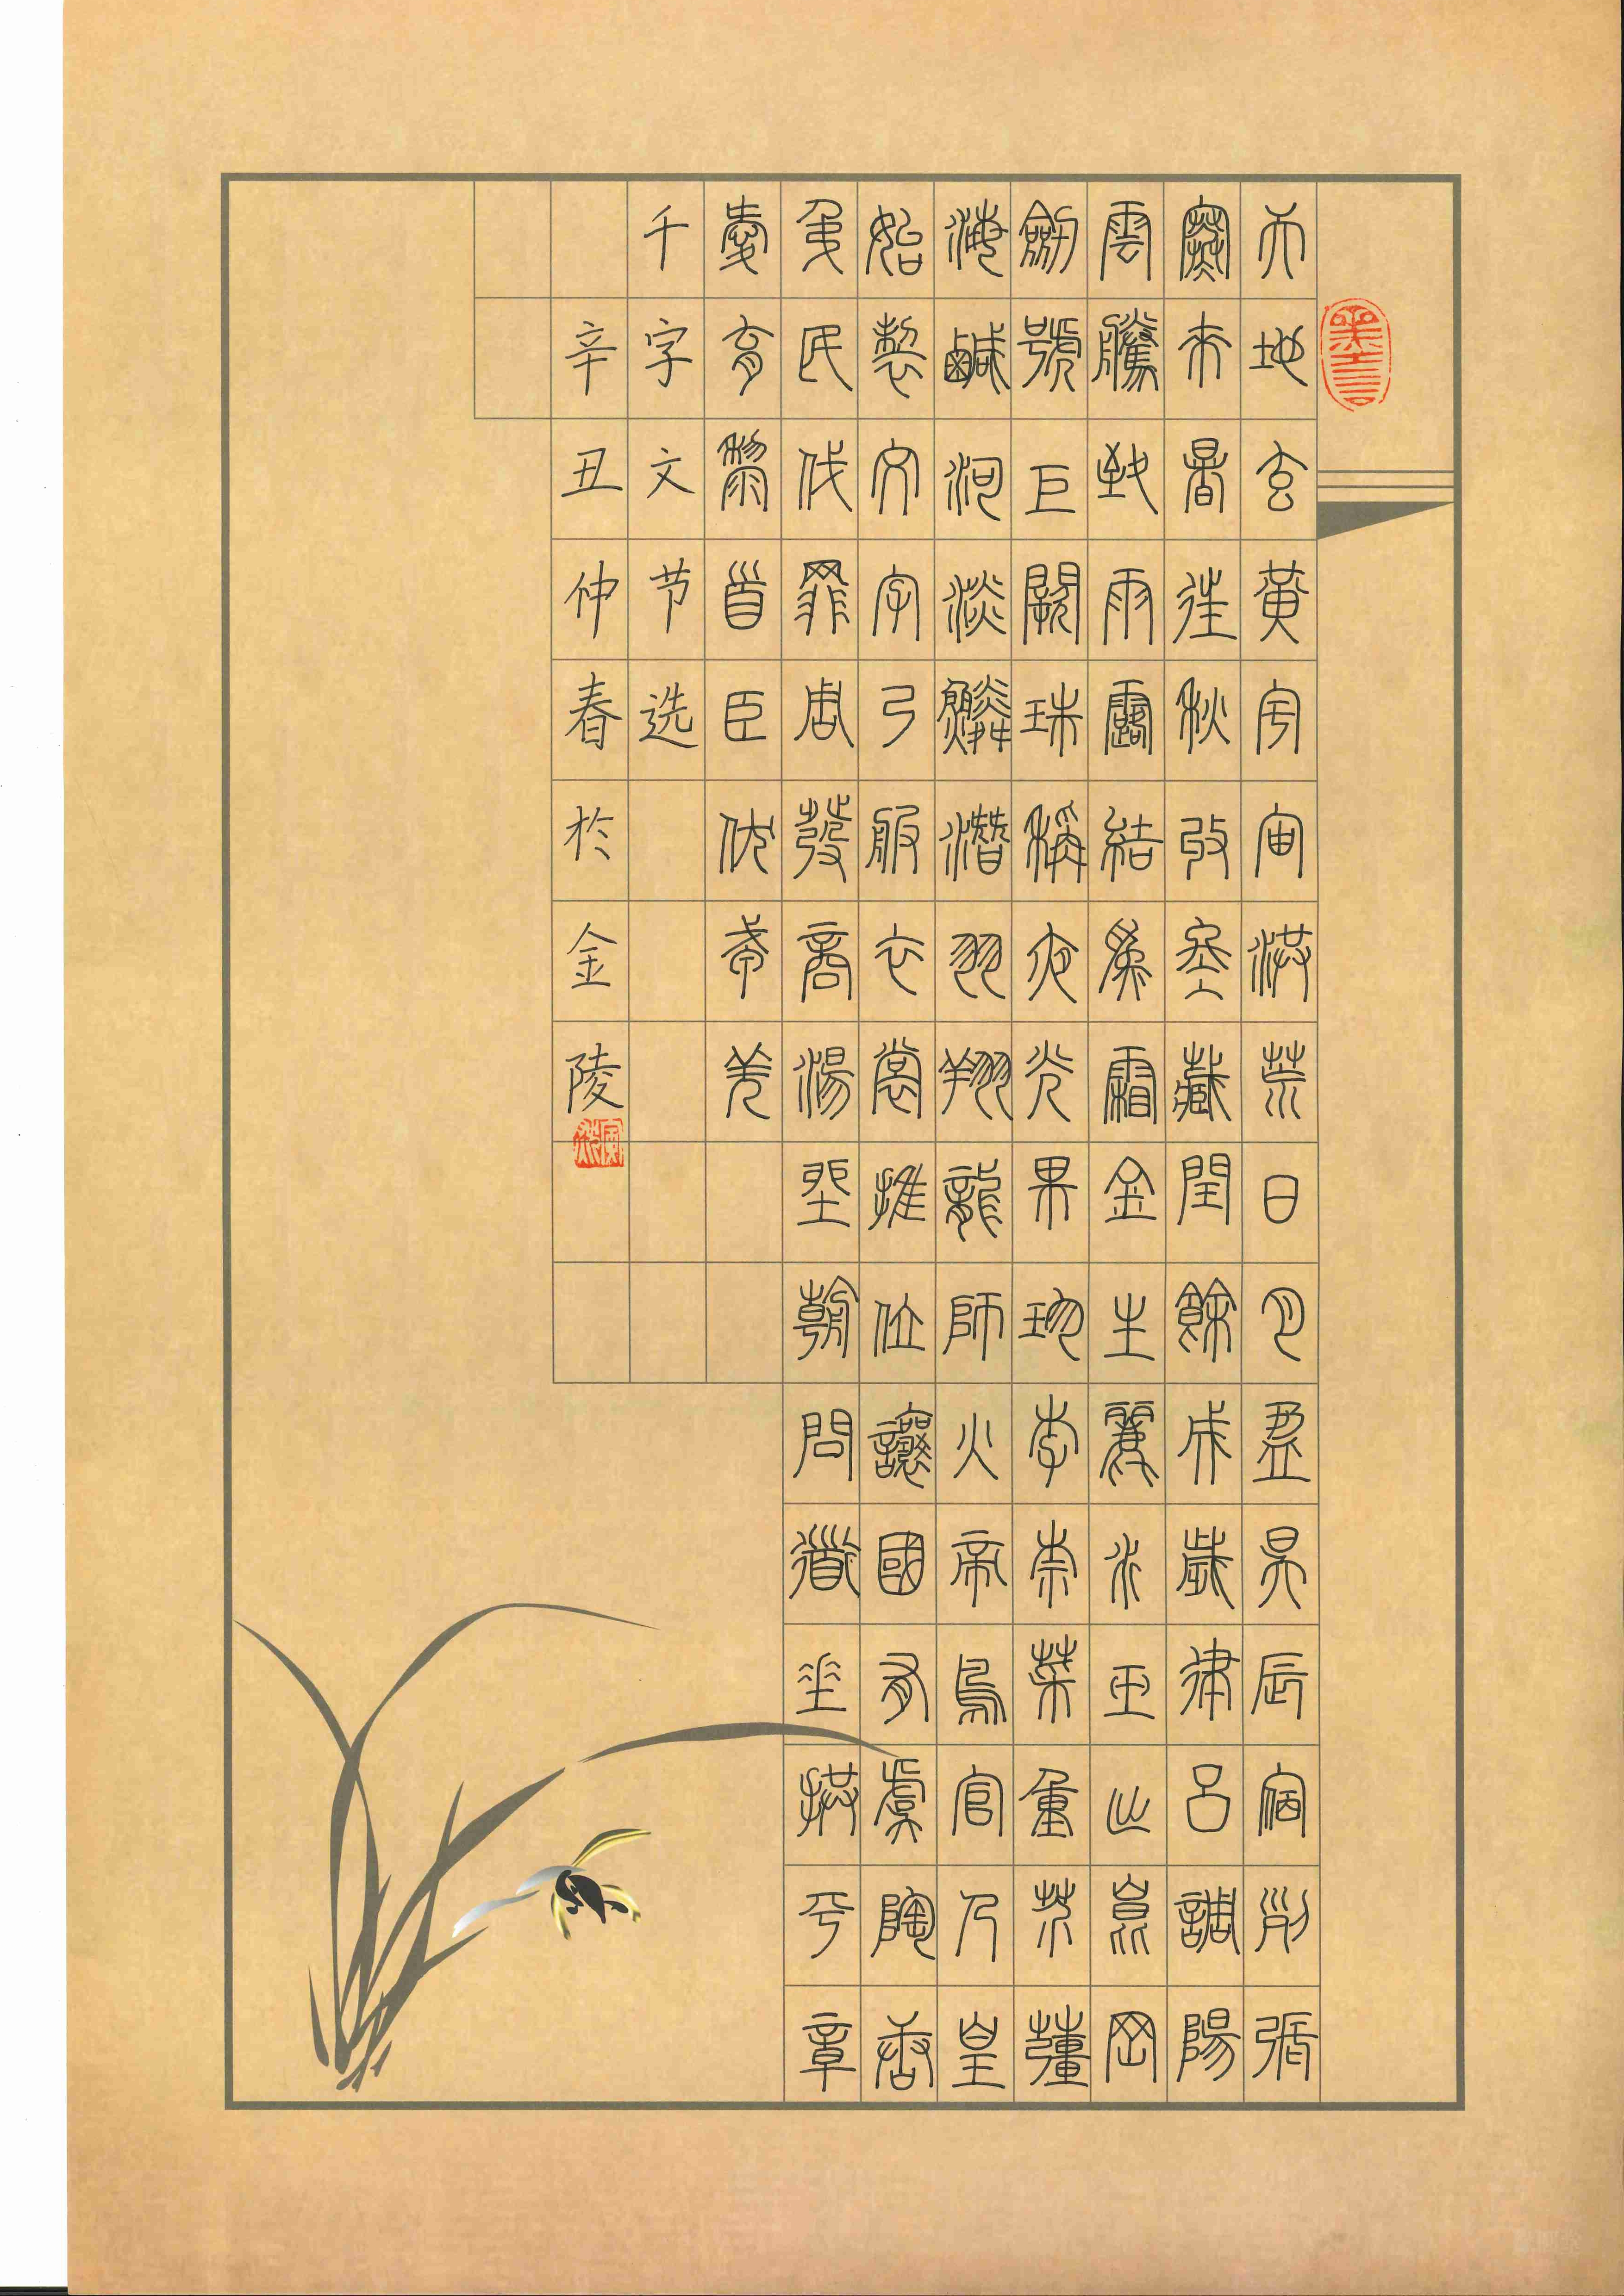 天地玄黃宇宙洪荒日月盈昃辰宿列張
寒來暑往秋收冬藏閏餘成歲律呂調陽
雲騰致雨露結為霜金生麗水玉出崑岡
劍號巨闕珠稱夜光果珍李柰菜重芥薑
海鹹河淡鱗潛羽翔龍師火帝鳥官人皇
始製文字乃服衣裳推位讓國有虞陶唐
弔民伐罪周發商湯坐朝問道垂拱平章
愛育黎首臣伏戎羌
千字文节选
辛丑仲春於金陵